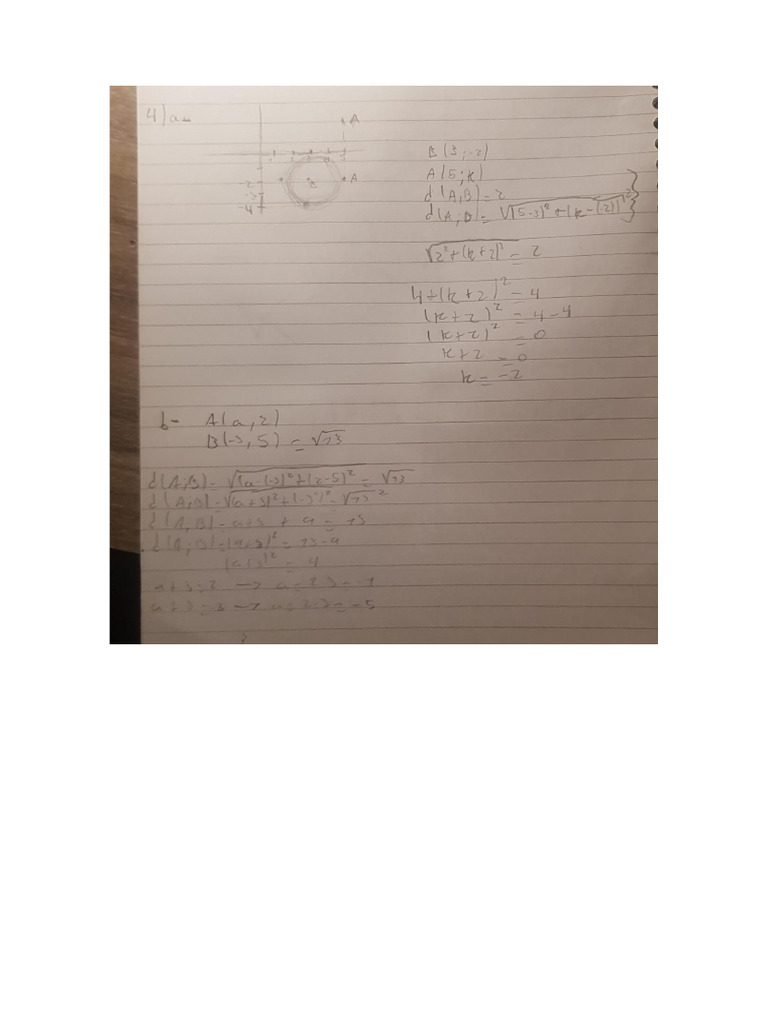 4) a-
A
-2
-3
-4
B
A
B(3;-2)
A(5;k)
d(A,B) = 2
d(A;B) = √(5-3)² + (k-(-2))²
√2² + (k+2)² = 2
4 + (k+2)² = 4
(k+2)² = 4-4
(k+2)² = 0
k+2 = 0
k = -2
b- A(a,2)
B(-3,5) = √13
d(A;B) = √(a-(-3))² + (2-5)² = √13
d(A;B) = √(a+3)² + (-3)² = √13²
d(A,B) = a+3 + 9 = 13
d(A;B) = (a+3)² = 13-9
(a+3)² = 4